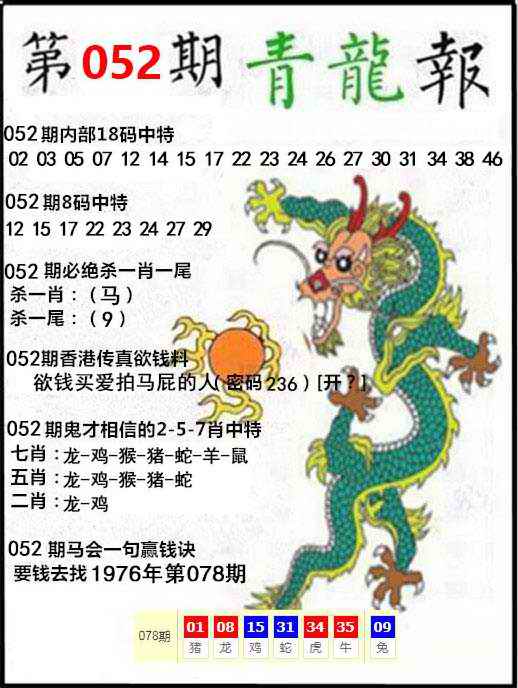 第052期青龍報
052期内部18码中特
02 03 05 07 12 14 15 17 22 23 24 26 27 30 31 34 38 46
052期8码中特
12 15 17 22 23 24 27 29
052 期必绝杀一肖一尾
杀一肖：（马）
杀一尾：（9）
052期香港传真欲钱料
欲钱买爱拍马屁的人(密码236)[开?]
052期鬼才相信的2-5-7肖中特
七肖：龙-鸡-猴-猪-蛇-羊-鼠
五肖：龙-鸡-猴-猪-蛇
二肖：龙-鸡
052 期马会一句赢钱诀
要钱去找1976年第078期
078期 01 08 15 31 34 35 09
猪 龙 鸡 蛇 虎 牛 兔